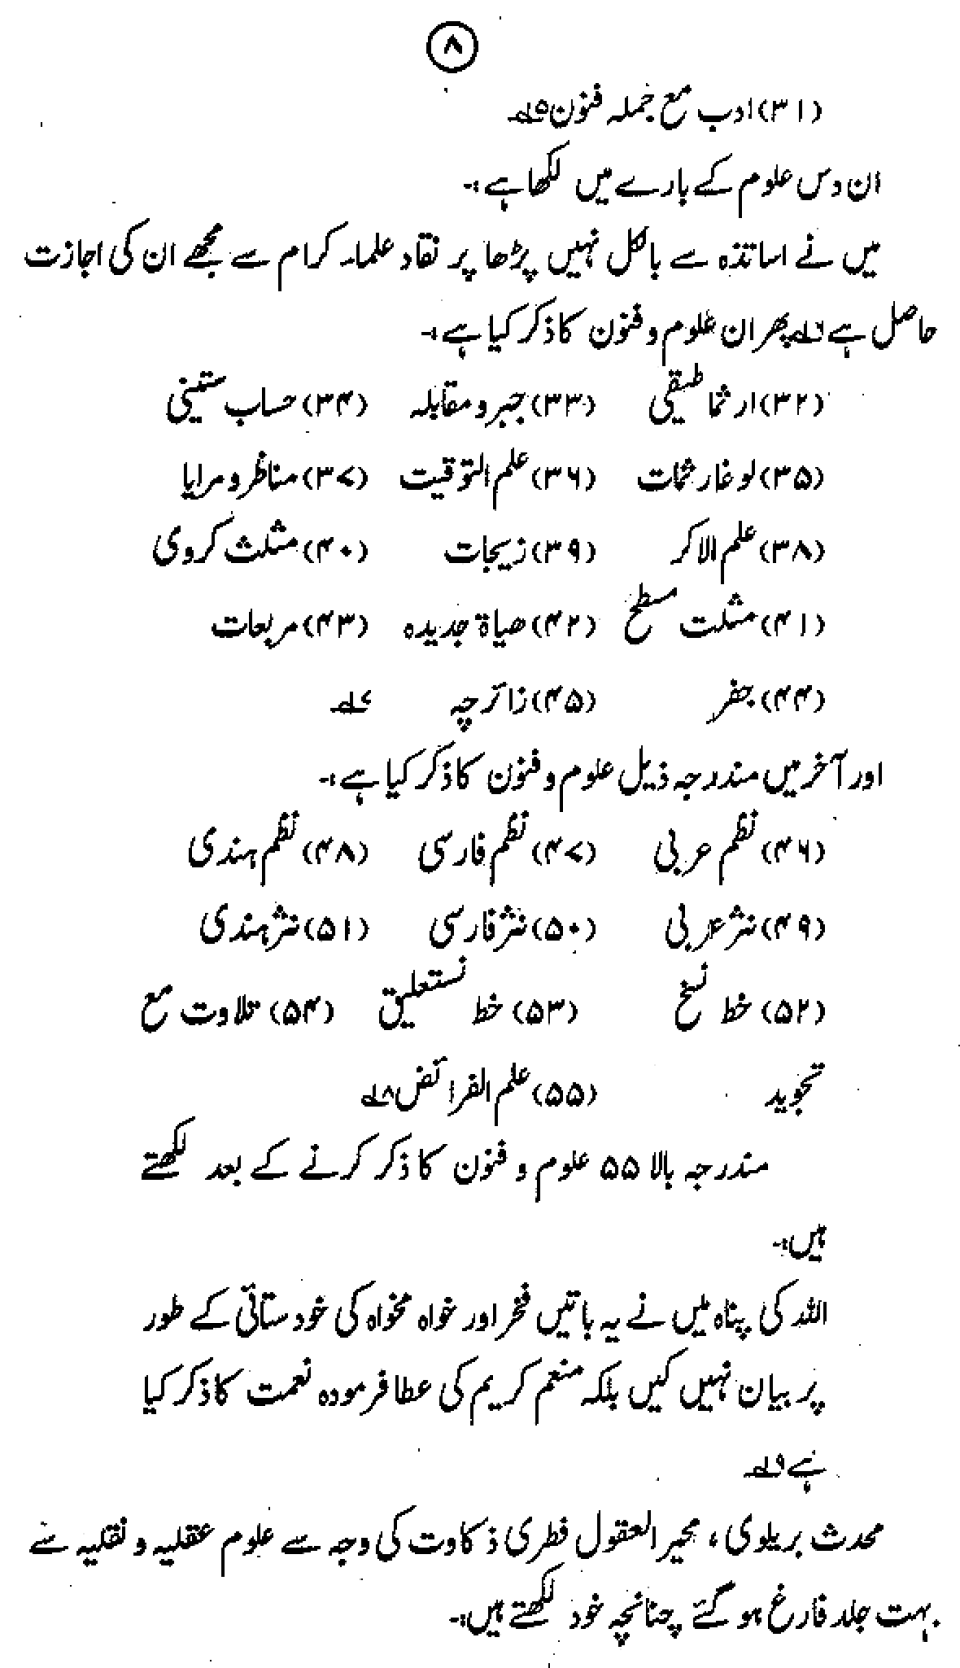 ۸
(۳۱) ادب مع جملہ فنون ۵؎
ان دس علوم کے بارے میں لکھا ہے :-
میں نے اساتذہ سے بالکل نہیں پڑھا پر نقاد علماء کرام سے مجھے ان کی اجازت
حاصل ہے ۶؎ پھر ان علوم و فنون کا ذکر کیا ہے :-
(۳۲) ارثماطیقی (۳۳) جبر و مقابلہ (۳۴) حساب ستینی
(۳۵) لوغارثمات (۳۶) علم التوقیت (۳۷) مناظر و مرایا
(۳۸) علم الاکر (۳۹) زیجات (۴۰) مثلث کروی
(۴۱) مثلت مسطح (۴۲) ھیاۃ جدیدہ (۴۳) مربعات
(۴۴) جفر (۴۵) زائرچہ ۷؎
اور آخر میں مندرجہ ذیل علوم و فنون کا ذکر کیا ہے :-
(۴۶) نظم عربی (۴۷) نظم فارسی (۴۸) نظم ہندی
(۴۹) نثر عربی (۵۰) نثر فارسی (۵۱) نثر ہندی
(۵۲) خط نسخ (۵۳) خط نستعلیق (۵۴) تلاوت مع
تجوید (۵۵) علم الفرائض ۸؎
مندرجہ بالا ۵۵ علوم و فنون کا ذکر کرنے کے بعد لکھتے
ہیں :-
اللہ کی پناہ میں نے یہ باتیں فخر اور خواہ مخواہ کی خود ستائی کے طور
پر بیان نہیں کیں بلکہ منعم کریم کی عطا فرمودہ نعمت کا ذکر کیا
ہے ۹؎
محدث بریلوی، محیر العقول فطری ذکاوت کی وجہ سے علوم عقلیہ و نقلیہ سے
بہت جلد فارغ ہو گئے چنانچہ خود لکھتے ہیں :-